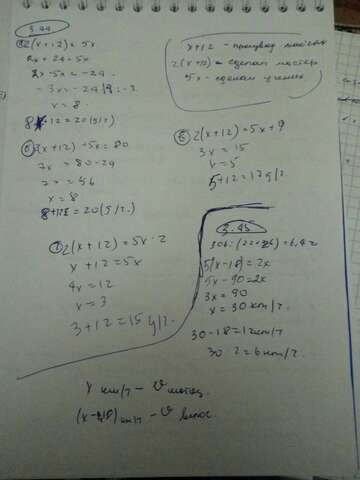 3.44
2(x+12)=5x
2x+24=5x
2x-5x=-24
-3x=-24 |: -3
x=8
8+12=20(д/ч)
x+12 - мастер
2(x+12) = сделал мастер
5x - сделал ученик
2(x+12)+5x=80
7x = 80-24
7x = 56
x=8
8+12=20(д/ч.)
2(x+12)=5x+9
3x=15
x=5
5+12=17д/ч
2(x+12)=5x·2
x+12=5x
4x=12
x=3
3+12=15д/ч.
3.45
5(x-18)=2x
5x-90=2x
3x=90
x=30км/ч.
30-18=12км/ч
30·2=6км/ч.
x км/ч - v мотоц.
(x-18) км/ч - v велос.